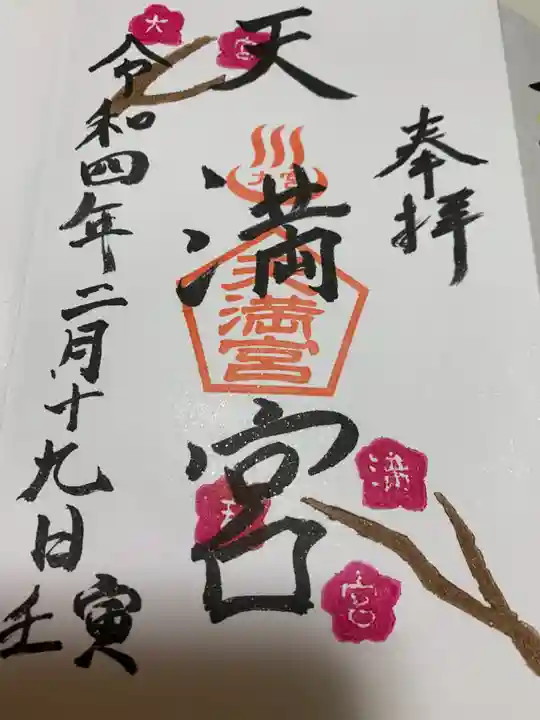 奉拝
天満宮
大宮
天満宮
令和四年二月十九日
壬寅
大
宮
天
満
宮